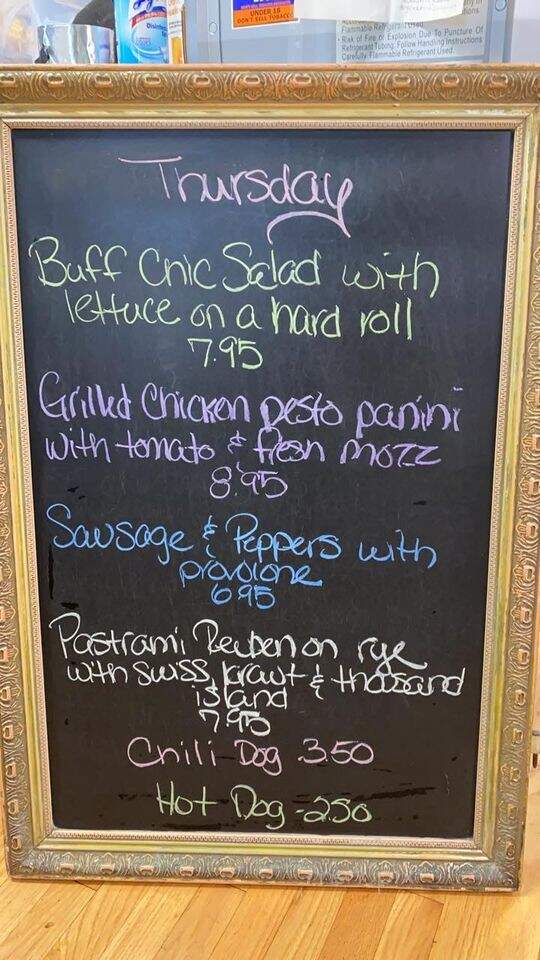 UNDER 18
DON'T SELL TOBACCO
Flammable Refrigerant Used.
- Risk of Fire or Explosion Due To Puncture Of
Refrigerant Tubing; Follow Handling Instructions
Carefully. Flammable Refrigerant Used.
Thursday
Buff Chic Salad with
lettuce on a hard roll
7.95
Grilled Chicken pesto panini
with tomato & fresh mozz
8.95
Sausage & Peppers with
provolone
6.95
Pastrami Reuben on rye
with swiss, kraut & thousand
island
7.95
Chili Dog 3.50
Hot Dog - 2.50